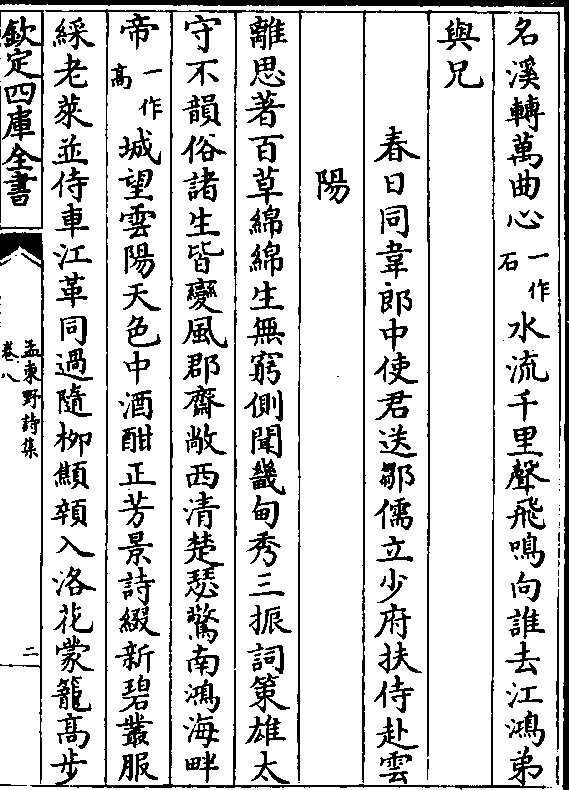 名溪轉萬曲心一作石水流千里聲飛鳴向誰去江鴻弟
與兄
春日同韋郎中使君送鄒儒立少府扶侍赴雲
陽
離思著百草綿綿生無窮側聞畿甸秀三振詞策雄太
守不韻俗諸生皆變風郡齋敞西清楚瑟驚南鴻海畔
帝一作高城望雲陽天色中酒酣正芳景詩綴新碧叢服
綵老萊並侍車江革同過隨柳顦顇入洛花蒙籠高步
欽定四庫全書
孟東野詩集
卷八
二